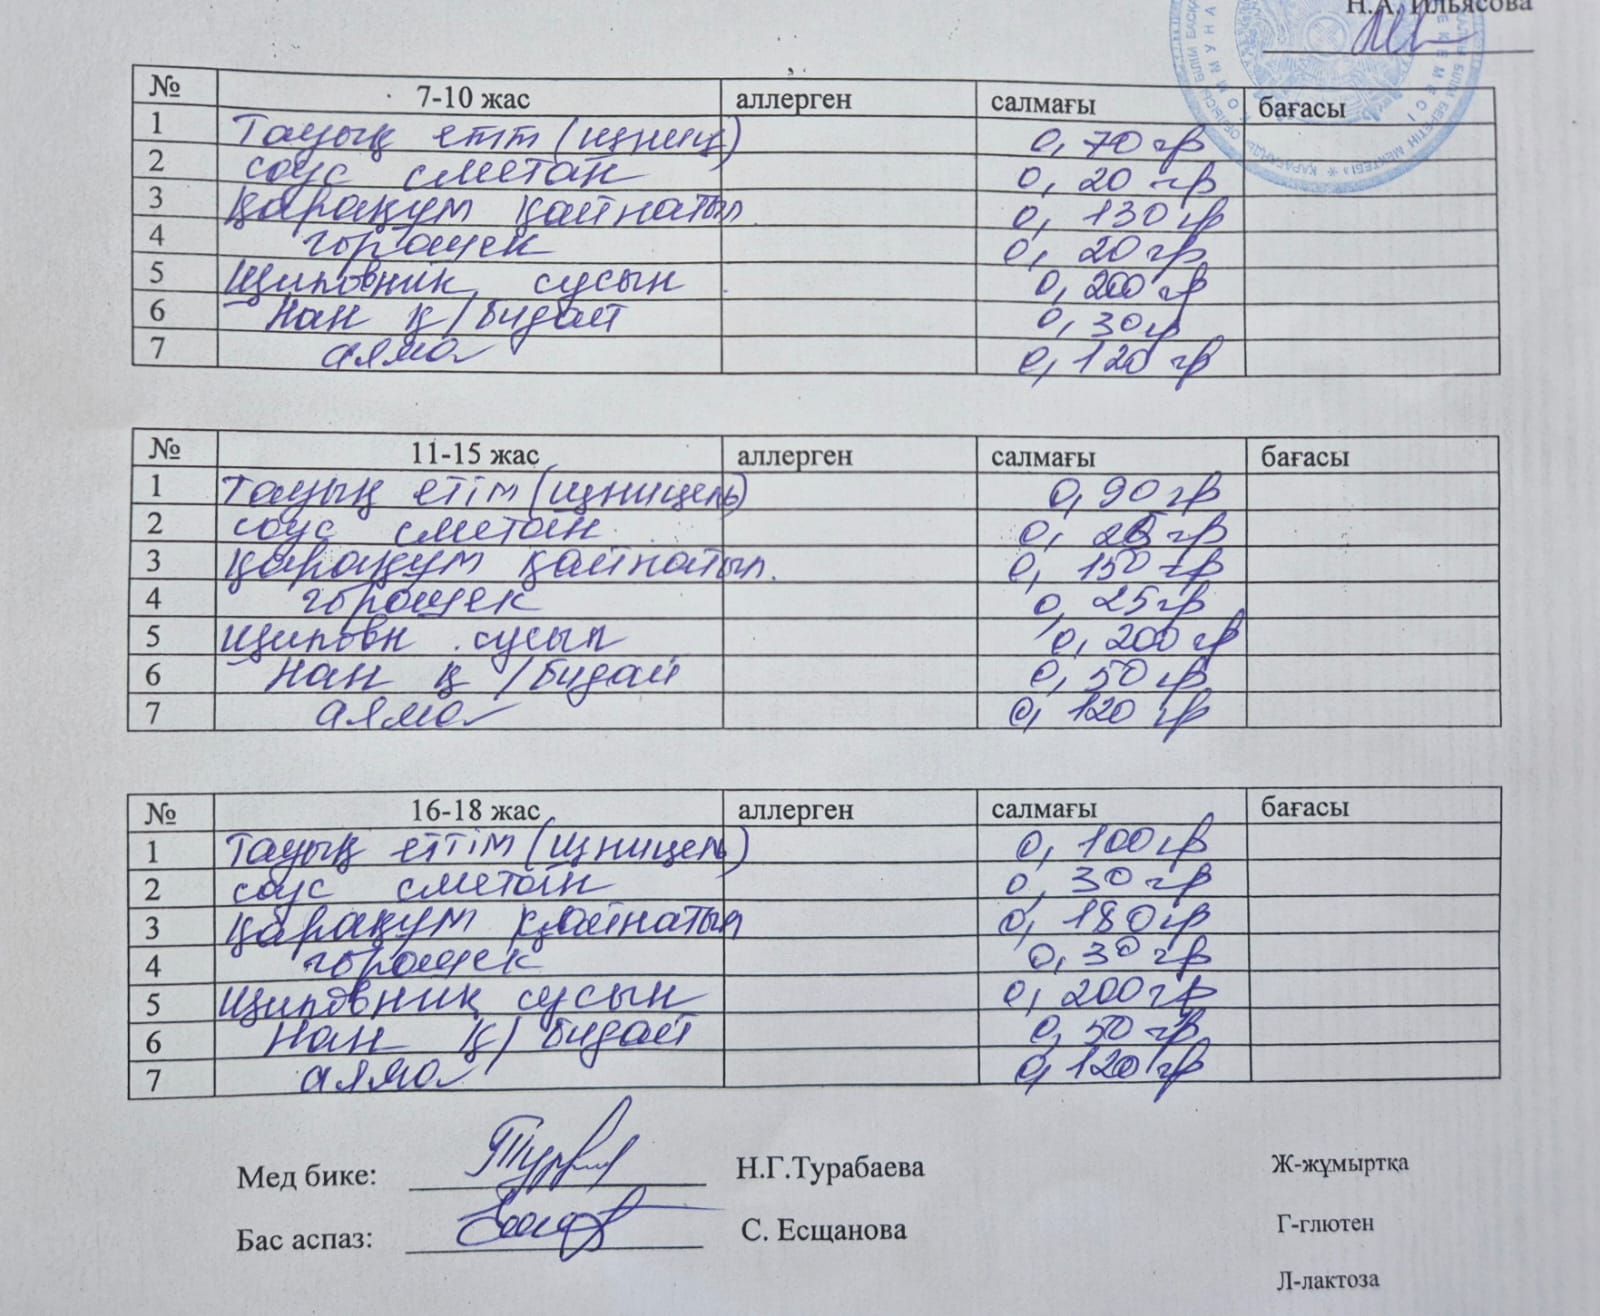 Н.А. Ильясова
№ 7-10 жас аллерген салмағы бағасы
1 Тауық етт (щниц) 0,70 гр
2 соус сметан 0,20 гр
3 Қарақұм қайнатыл 0,130 гр
4 горошек 0,20 гр
5 Щиповник сусын 0,200 гр
6 Нан қ/бидай 0,30 гр
7 алма 0,120 гр
№ 11-15 жас аллерген салмағы бағасы
1 Тауық етім (щницель) 0,90 гр
2 соус сметан 0,25 гр
3 Қарақұм қайнатыл. 0,150 гр
4 горошек 0,25 гр
5 Щиповн. сусын 0,200 гр
6 Нан қ/бидай 0,50 гр
7 алма 0,120 гр
№ 16-18 жас аллерген салмағы бағасы
1 Тауық еттім (щницель) 0,100 гр
2 соус сметан 0,30 гр
3 Қарақұм қайнатыл 0,180 гр
4 горошек 0,30 гр
5 Щиповник сусын 0,200 гр
6 Нан қ/бидай 0,50 гр
7 алма 0,120 гр
Мед бике: Н.Г.Турабаева
Бас аспаз: С. Есщанова
Ж-жұмыртқа
Г-глютен
Л-лактоза